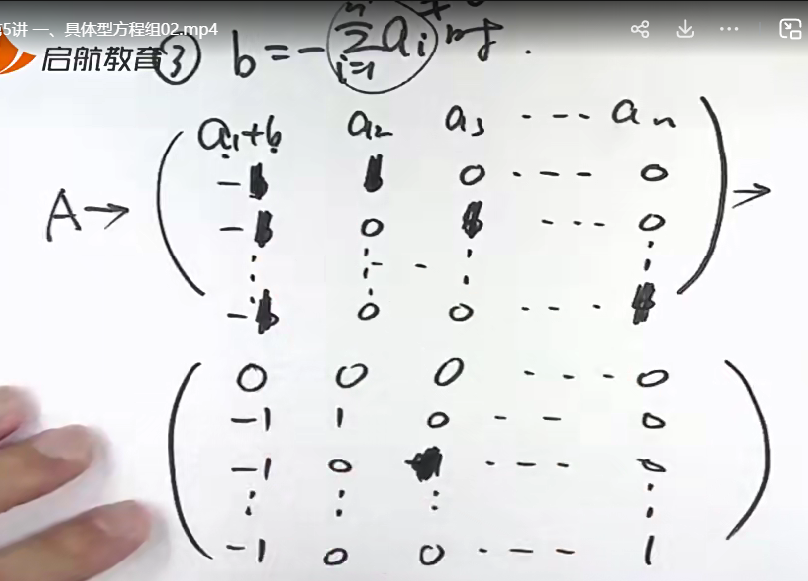 5讲 一、具体型方程组02.mp4
启航教育
③ b = -∑ᵢ₌₁ⁿ aᵢ ≠ 0 时.
a₁+b a₂ a₃ --- aₙ
-1 1 0 ---- 0
A→ -1 0 1 --- 0 →
⋮ ⋮ -- ⋮ ⋮
-1 0 0 ---- 1
0 0 0 ---- 0
-1 1 0 -- -- 0
-1 0 1 ---- 0
⋮ ⋮ ⋮ ⋮
-1 0 0 ·--- 1